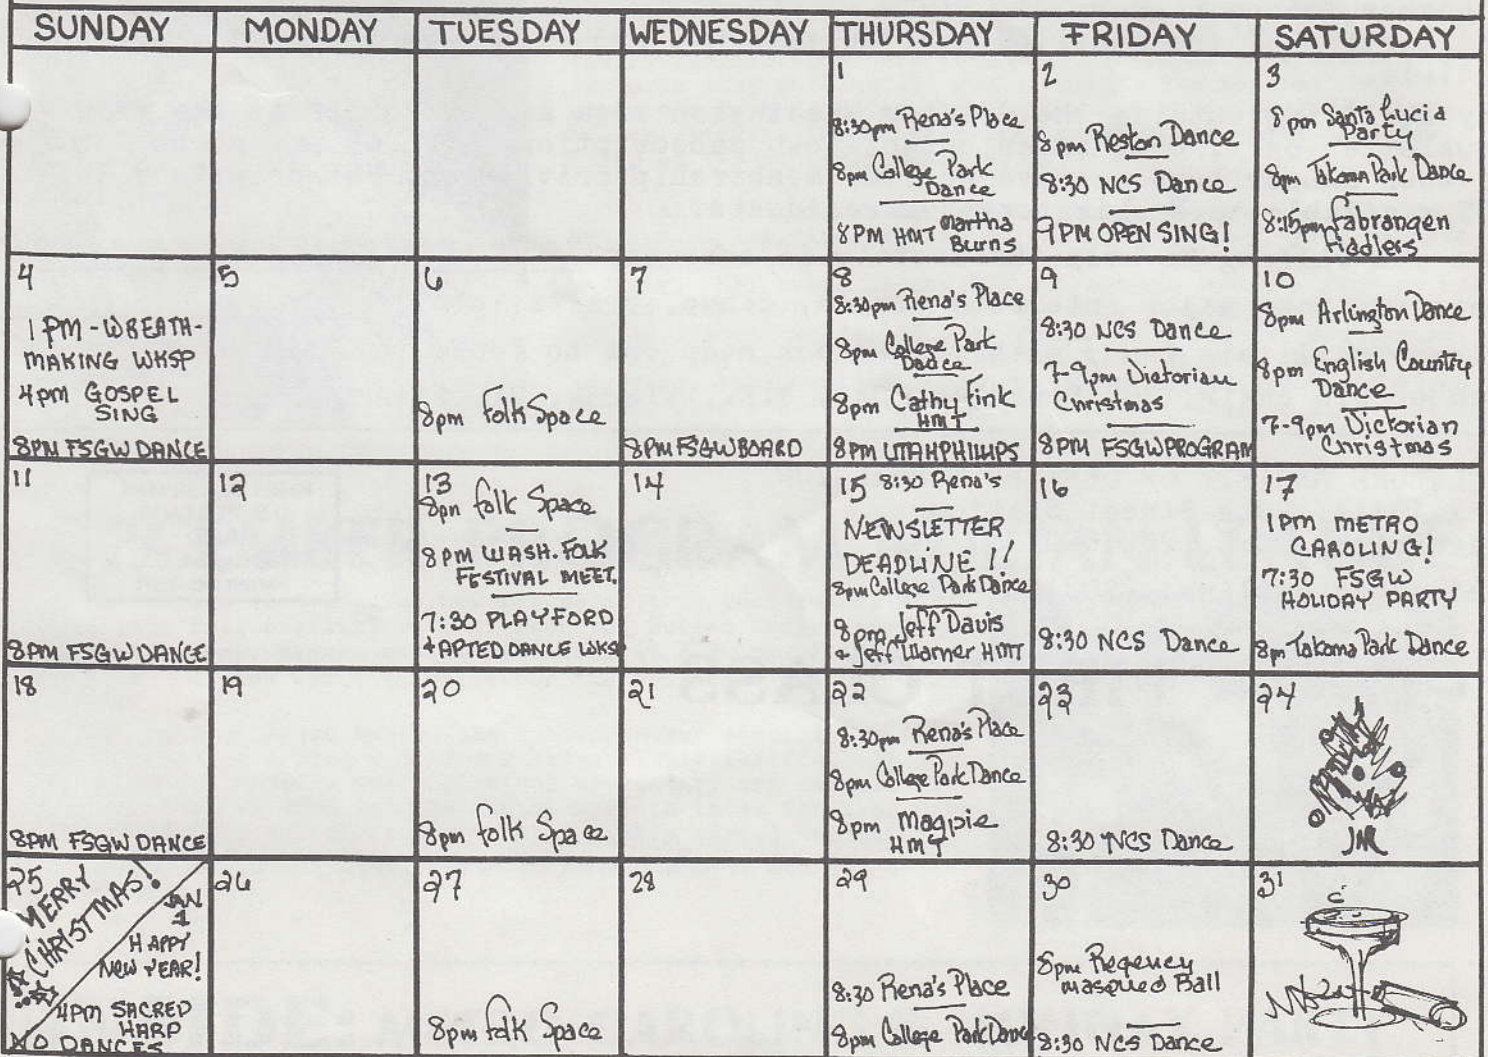 SUNDAY MONDAY TUESDAY WEDNESDAY THURSDAY FRIDAY SATURDAY
1
8:30pm Rena's Place
8pm College Park
Dance
8PM HMT Martha
Burns
2
8pm Reston Dance
8:30 NCS Dance
9PM OPEN SING!
3
8pm Santa Lucia
Party
8pm Takoma Park Dance
8:15pm Fabrangen
Fiddlers
4
1PM - WREATH-
MAKING WKSP
4pm GOSPEL
SING
8PM FSGW DANCE
5
6
8pm Folk Space
7
8PM FSGW BOARD
8
8:30pm Rena's Place
8pm College Park
Dance
8pm Cathy Fink
HMT
8PM UTAH PHILLIPS
9
8:30 NCS Dance
7-9pm Victorian
Christmas
8PM FSGW PROGRAM
10
8pm Arlington Dance
8pm English Country
Dance
7-9pm Victorian
Christmas
11
8PM FSGW DANCE
12
13
8pm Folk Space
8PM WASH. FOLK
FESTIVAL MEET.
7:30 PLAYFORD
+ APTED DANCE WKSP
14
15 8:30 Rena's
NEWSLETTER
DEADLINE!!
8pm College Park Dance
8pm Jeff Davis
& Jeff Warner HMT
16
8:30 NCS Dance
17
1PM METRO
CAROLING!
7:30 FSGW
HOLIDAY PARTY
8pm Takoma Park Dance
18
8PM FSGW DANCE
19
20
8pm Folk Space
21
22
8:30pm Rena's Place
8pm College Park Dance
8pm Magpie
HMT
23
8:30 NCS Dance
24
25
MERRY
CHRISTMAS!
JAN
1
HAPPY
NEW YEAR!
4PM SACRED
HARP
NO DANCES
26
27
8pm Folk Space
28
29
8:30 Rena's Place
8pm College Park Dance
30
8pm Regency
Masqued Ball
8:30 NCS Dance
31